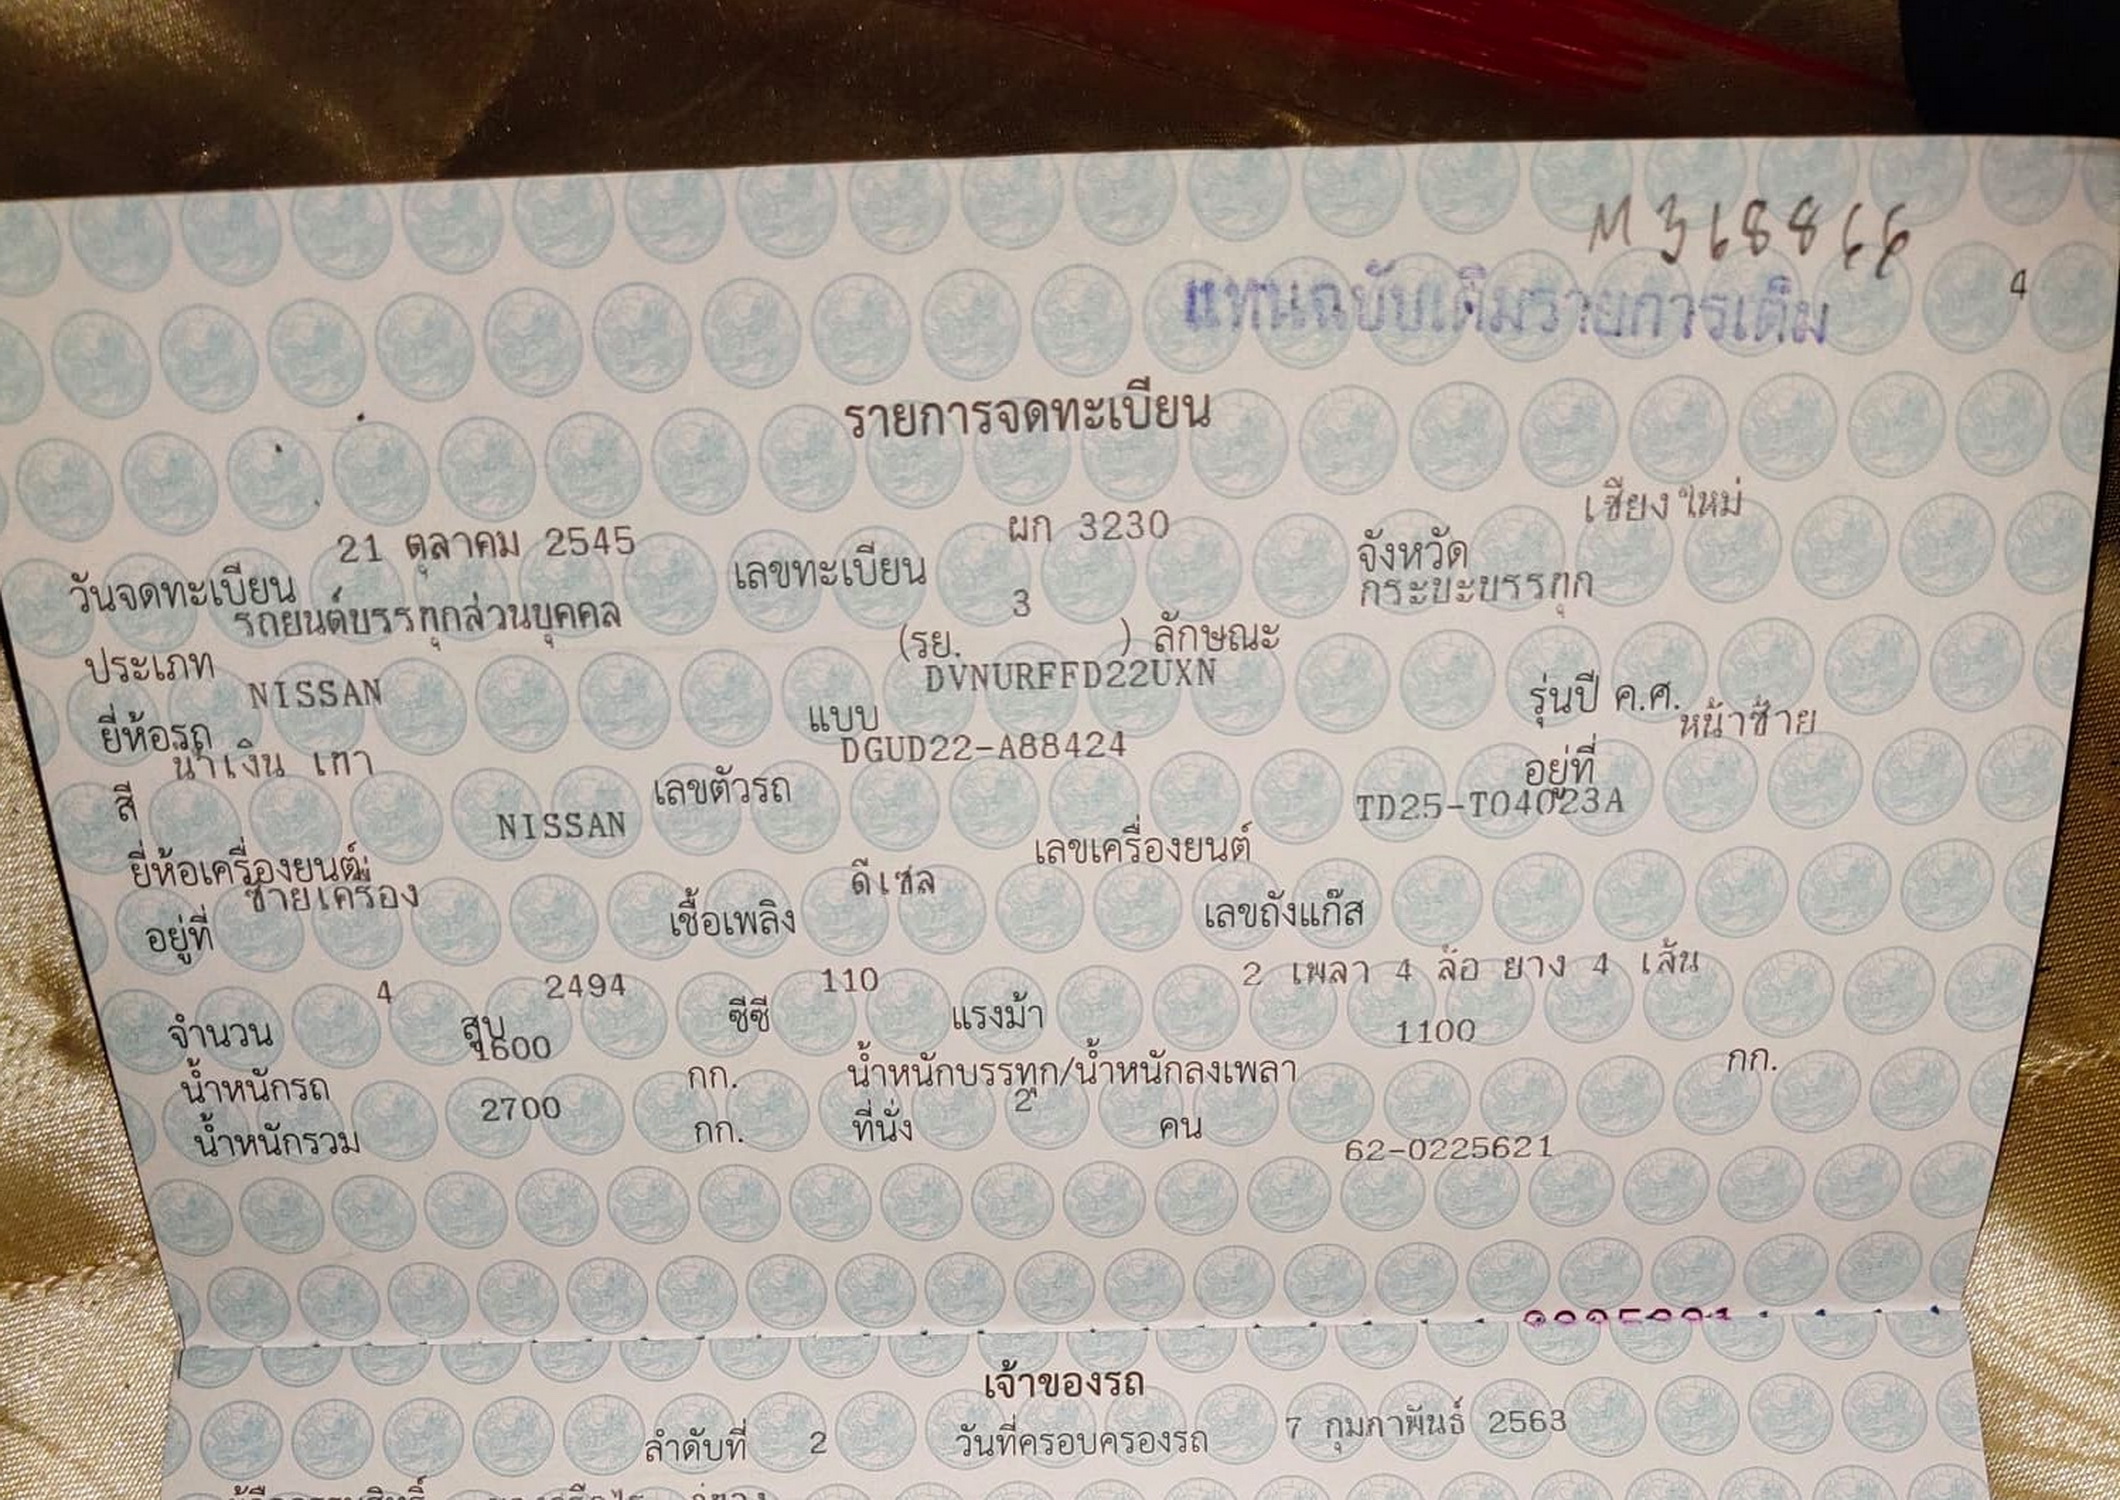 M 368866
แทนฉบับเดิมรายการเดิม
4
รายการจดทะเบียน
วันจดทะเบียน 21 ตุลาคม 2545 เลขทะเบียน ผก 3230 จังหวัด เชียงใหม่
ประเภท รถยนต์บรรทุกส่วนบุคคล (รย. 3 ) ลักษณะ กระบะบรรทุก
ยี่ห้อรถ NISSAN แบบ DVNURFFD22UXN รุ่นปี ค.ศ.
สี น้ำเงิน เทา เลขตัวรถ DGUD22-A88424 อยู่ที่ หน้าซ้าย
ยี่ห้อเครื่องยนต์ NISSAN เลขเครื่องยนต์ TD25-T04023A
อยู่ที่ ซ้ายเครื่อง เชื้อเพลิง ดีเซล เลขถังแก๊ส
จำนวน 4 สูบ 2494 ซีซี 110 แรงม้า 2 เพลา 4 ล้อ ยาง 4 เส้น
น้ำหนักรถ 1600 กก. น้ำหนักบรรทุก/น้ำหนักลงเพลา 1100 กก.
น้ำหนักรวม 2700 กก. ที่นั่ง 2 คน
62-0225621
เจ้าของรถ
ลำดับที่ 2 วันที่ครอบครองรถ 7 กุมภาพันธ์ 2563